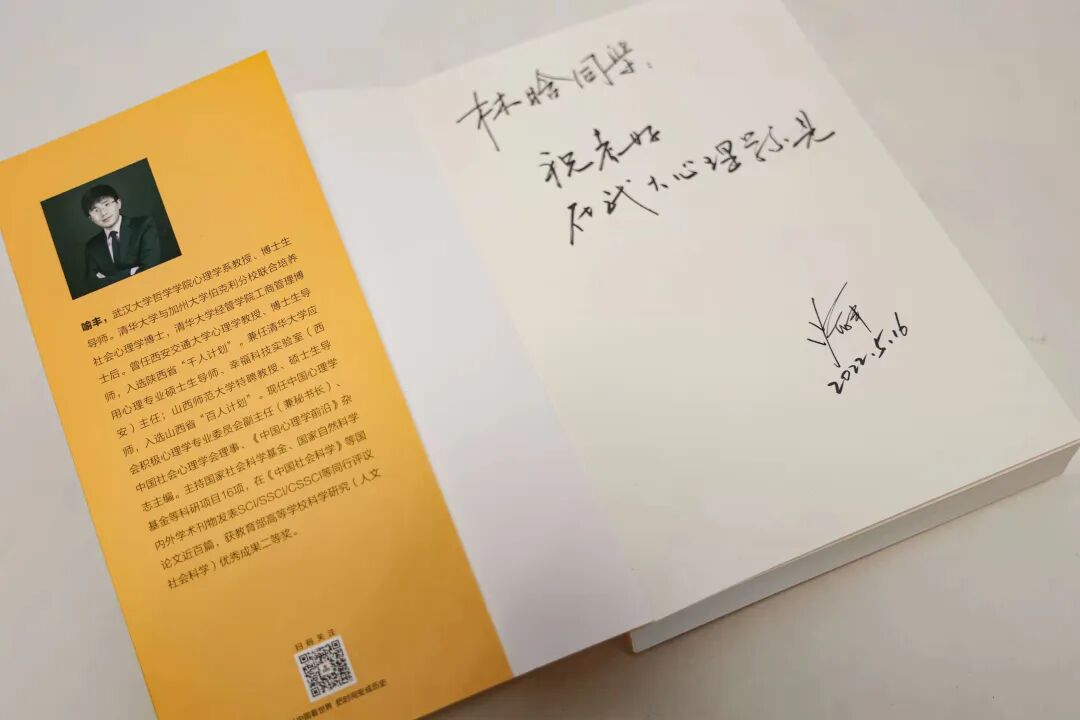 喻丰，武汉大学哲学学院心理学系教授、博士生
导师。清华大学与加州大学伯克利分校联合培养
社会心理学博士，清华大学经管学院工商管理博
士后。曾任西安交通大学心理学教授、博士生导
师，入选陕西省“千人计划”。兼任清华大学应
用心理专业硕士生导师、幸福科技实验室（西
安）主任；山西师范大学特聘教授、硕士生导
师，入选山西省“百人计划”。现任中国心理学
会积极心理学专业委员会副主任（兼秘书长）、
中国社会心理学会理事、《中国心理学前沿》杂
志主编。主持国家社会科学基金、国家自然科学
基金等科研项目16项，在《中国社会科学》等国
内外学术刊物发表SCI/SSCI/CSSCI等同行评议
论文近百篇，获教育部高等学校科学研究（人文
社会科学）优秀成果二等奖。
扫码关注
中国看世界 把时间变成历史
林晗同学：
祝表好
在武大心理学系见
喻丰
2022.5.16